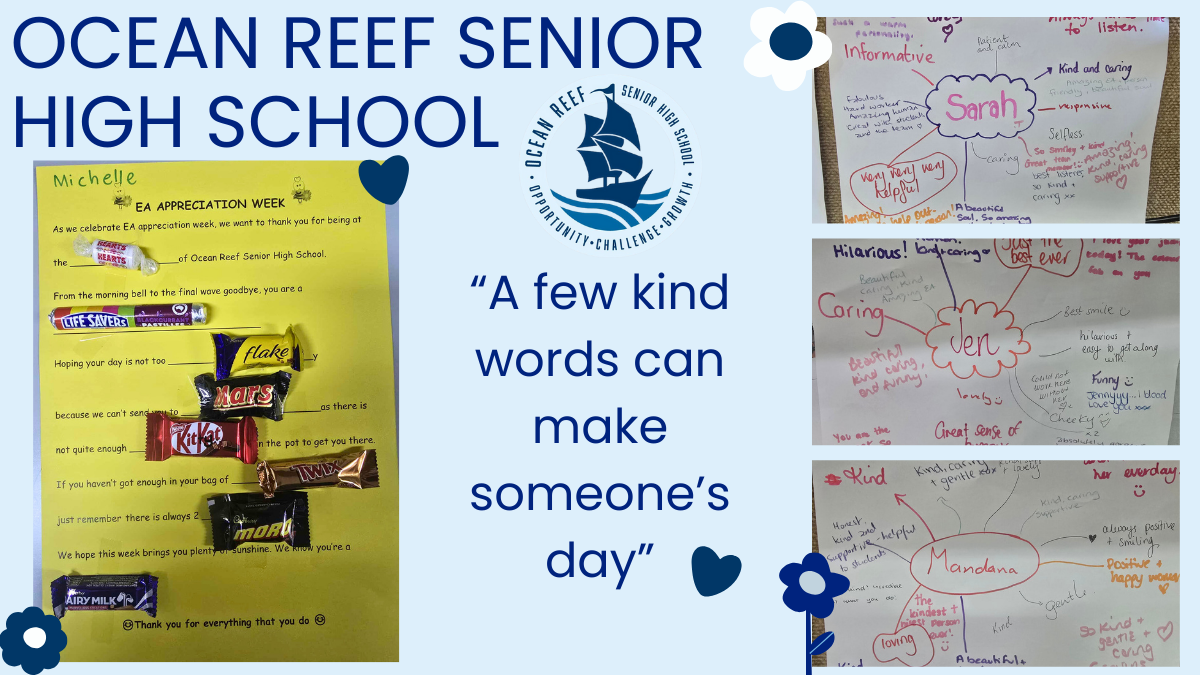 OCEAN REEF SENIOR
HIGH SCHOOL
OCEAN REEF SENIOR HIGH SCHOOL
OPPORTUNITY • CHALLENGE • GROWTH
Michelle
EA APPRECIATION WEEK
As we celebrate EA appreciation week, we want to thank you for being at
the HEARTS HEARTS of Ocean Reef Senior High School.
From the morning bell to the final wave goodbye, you are a
LIFE SAVERS BLACKCURRANT PASTILLES
Hoping your day is not too flake y
because we can't send you to Mars as there is
not quite enough KitKat in the pot to get you there.
If you haven't got enough in your bag of TWIX
just remember there is always 2 MORO
We hope this week brings you plenty of sunshine. We know you're a
DAIRY MILK
Thank you for everything that you do
“A few kind
words can
make
someone’s
day”
to listen.
Informative
Patient
and calm
Kind and caring
Sarah
responsive
Fabulous
Hard worker
Amazing human
and the team
Selfless
caring
very very very
helpful
best listener
so kind +
caring xx
A beautiful
Soul. So amazing
Hilarious!
Just the
best ever
Beautiful
caring, kind
Amazing EA
Caring
Jen
Best smile
hilarious +
easy to get along
with
Beautiful
kind caring,
and funny!
lovely
Funny
Jennyyy... i blood
love you xxx
Cheeky
x2
You are the
Great sense of
Kind
Kind, caring
+ gentle
her everyday.
Kind, caring
supportive
Honest,
kind and
supportive - helpful
to students
always positive
+ smiling
Mandana
Positive +
happy
gentle
the
kindest +
nicest person
ever!
loving
Kind
So kind +
gentle +
caring
Kind
A beautiful +